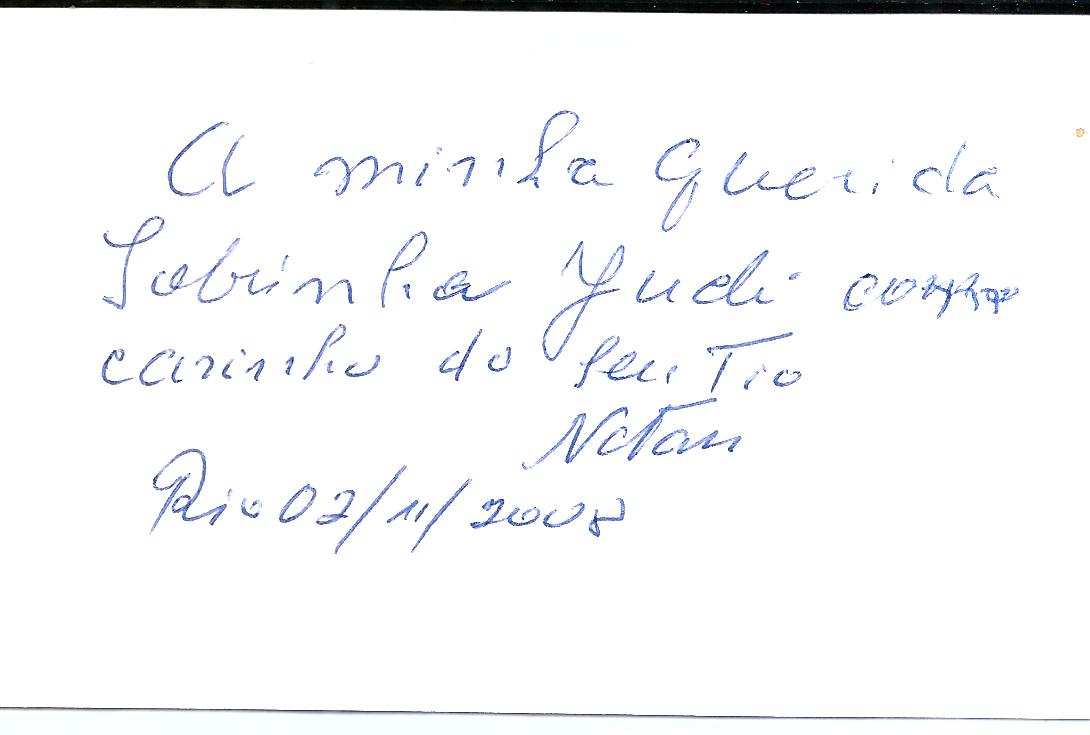 A minha querida
Sobrinha Yudi com
carinho do seu Tio
Natan
Rio 02/11/2008